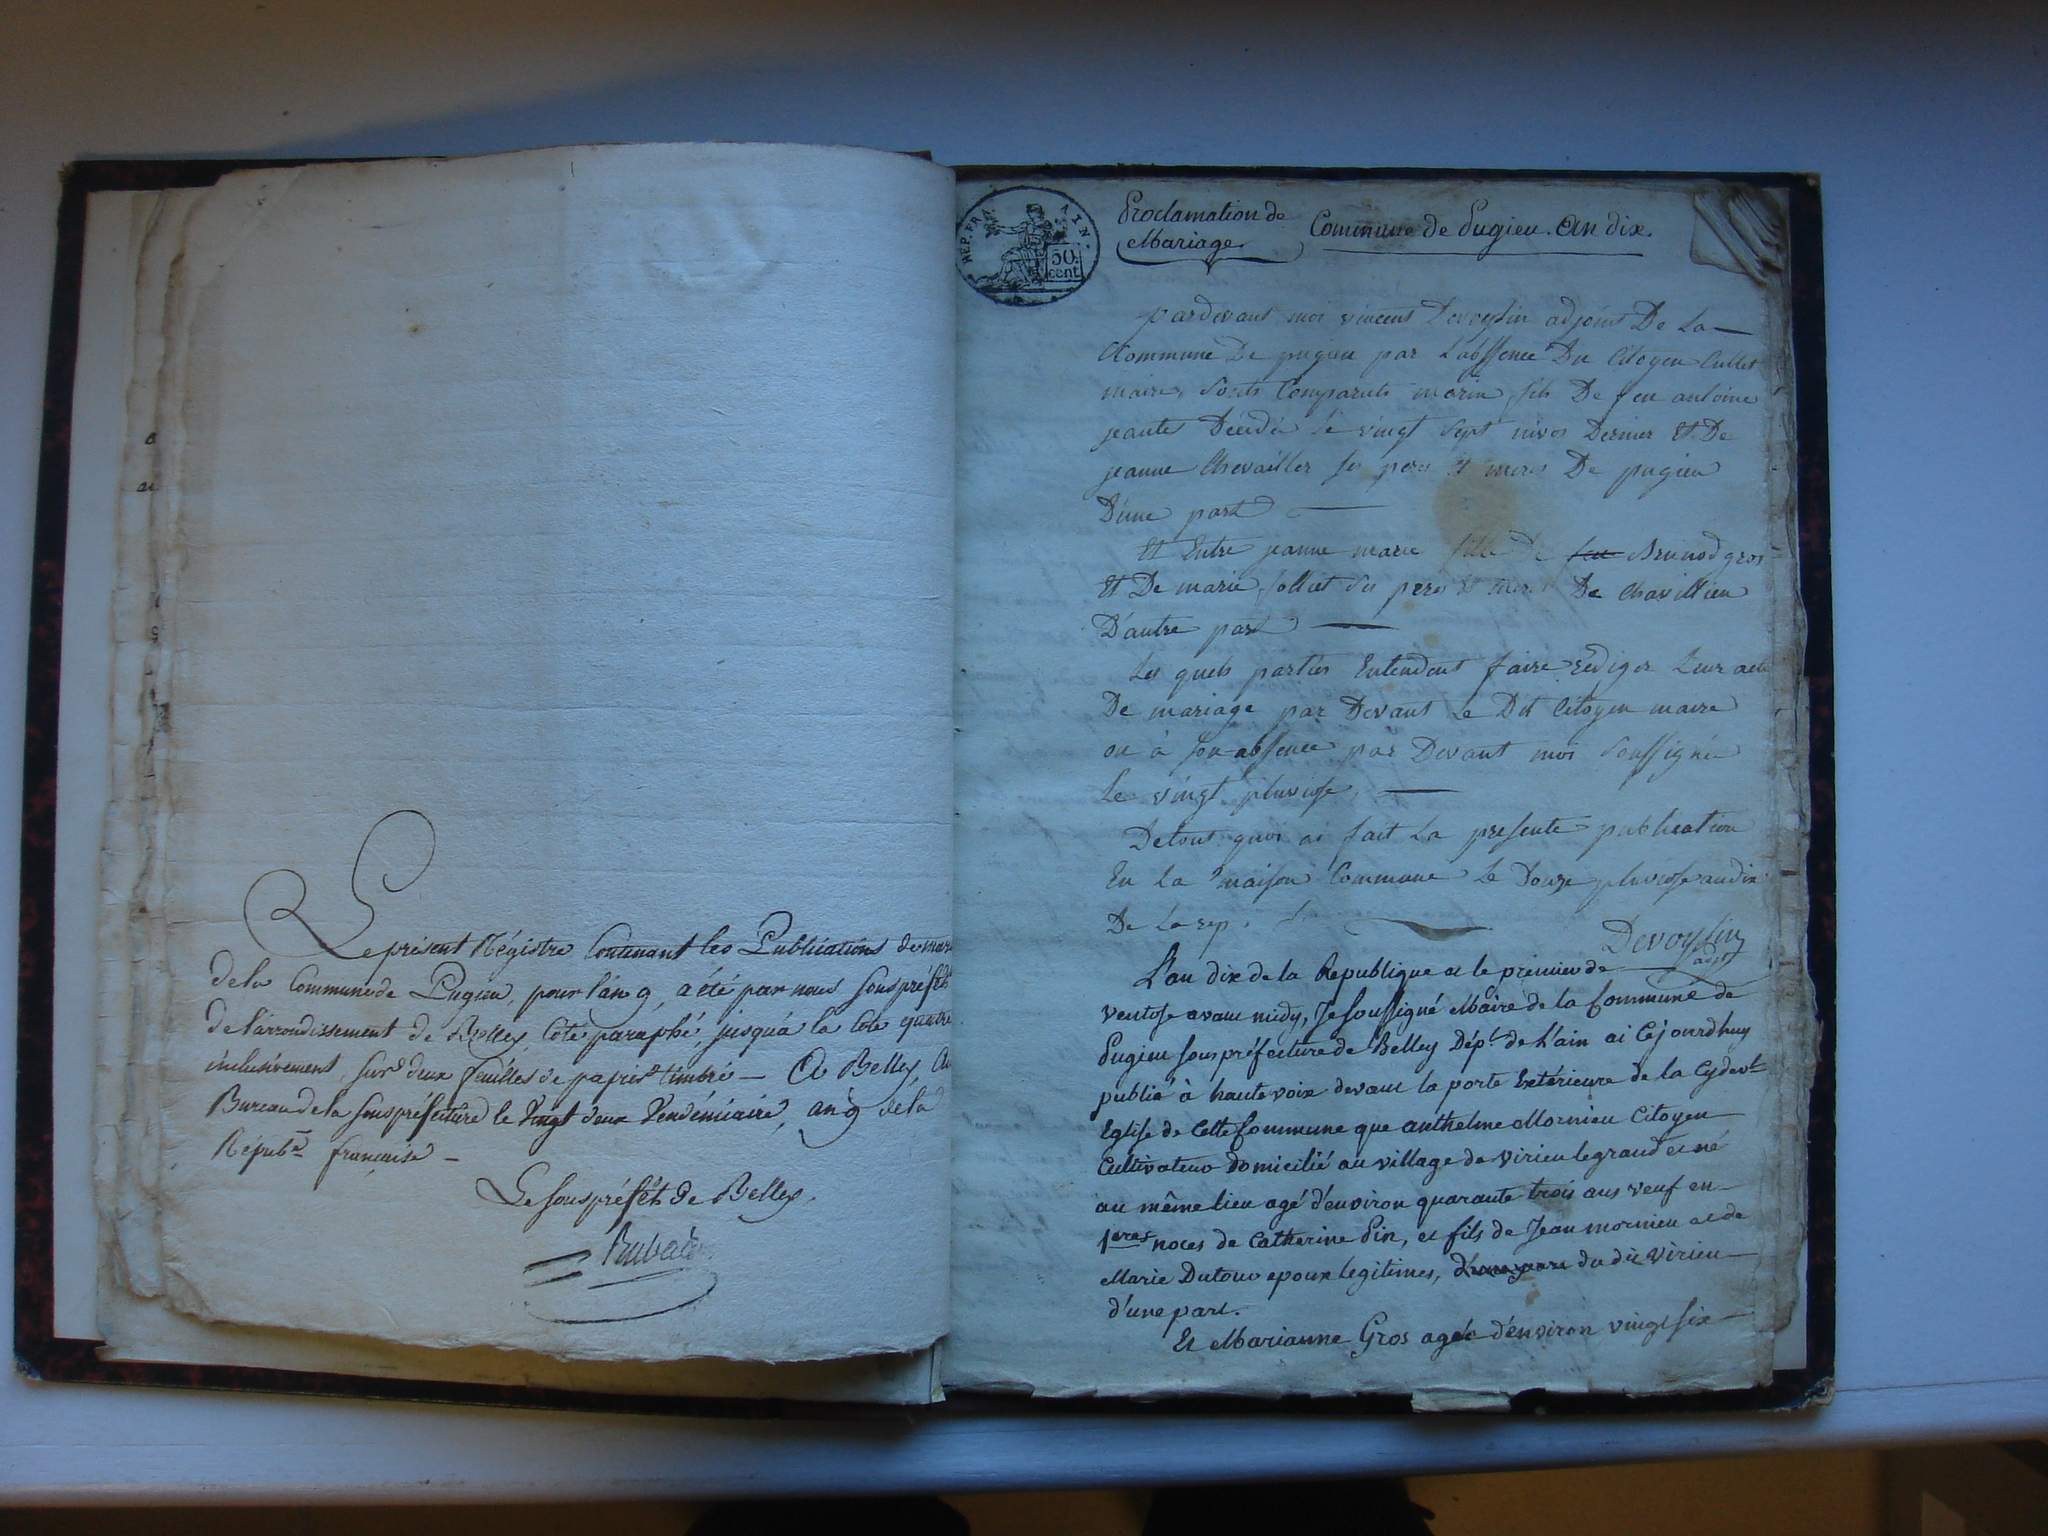 Le présent Régistre Contenant les Publications de mar
de la Commune de Pugieu, pour l'an 9, a été par nous souspréfét
de l'arrondissement de Belley, Coté paraphé, jusqu'a la Cote quatre
inclusivement, sur deux feuilles de papier timbré — A Belley, Au
Bureau de la souspréfecture le Vingt deux Vendémiaire, an 9 de la
Répub.e française —
Le souspréfét de Belley.
REP. FRA. AIN.
50. cent
Proclamation de
Mariage.
Commune de Pugieu. An dix.
pardevant moi vincent Devoysin adjoint De La
Commune De pugieu par L'abssence Du Citoyen Cullet
maire, sonts Comparuts marin fils De feu antoine
jeantet Décédé Le vingt sept nivos Dernier Et De
jeanne Chevailler ses peres et meres De pugieu
D'une part
Et Entre jeanne marie fille De feu Brunod gros
Et De marie follliet ses peres et meres De Chavillieu
D'autre part
Les quels parties Entendent faire rédiger Leur acte
De mariage par Devant Le Dit Citoyen maire
ou à son absence par Devant moi soussigné
Le vingt pluviose,
De tout quoi ai fait La presente publication
En La maison Commune Le Douze pluviose an dix
De La rep.
Devoysin
adjt
L'an dix de la Republique et le premier de
Ventose avant midy, Je soussigné Maire de la Commune de
Pugieu souspréfecture de Belley Dépt. de l'ain ai Cejourdhuy
publié à haute voix devant la porte Extérieure de la Cydevt
Eglise de Cette Commune que anthelme Mornieu Citoyen
Cultivateur domicilié au village de Virieu legrand et né
au même lieu agé d'environ quarante trois ans veuf en
1eres noces de Catherine Pin, et fils de Jean mornieu et de
Marie Dutour epoux legitimes, d'une part du dit Virieu
d'une part.
Et Marianne Gros agée d'environ vingt six